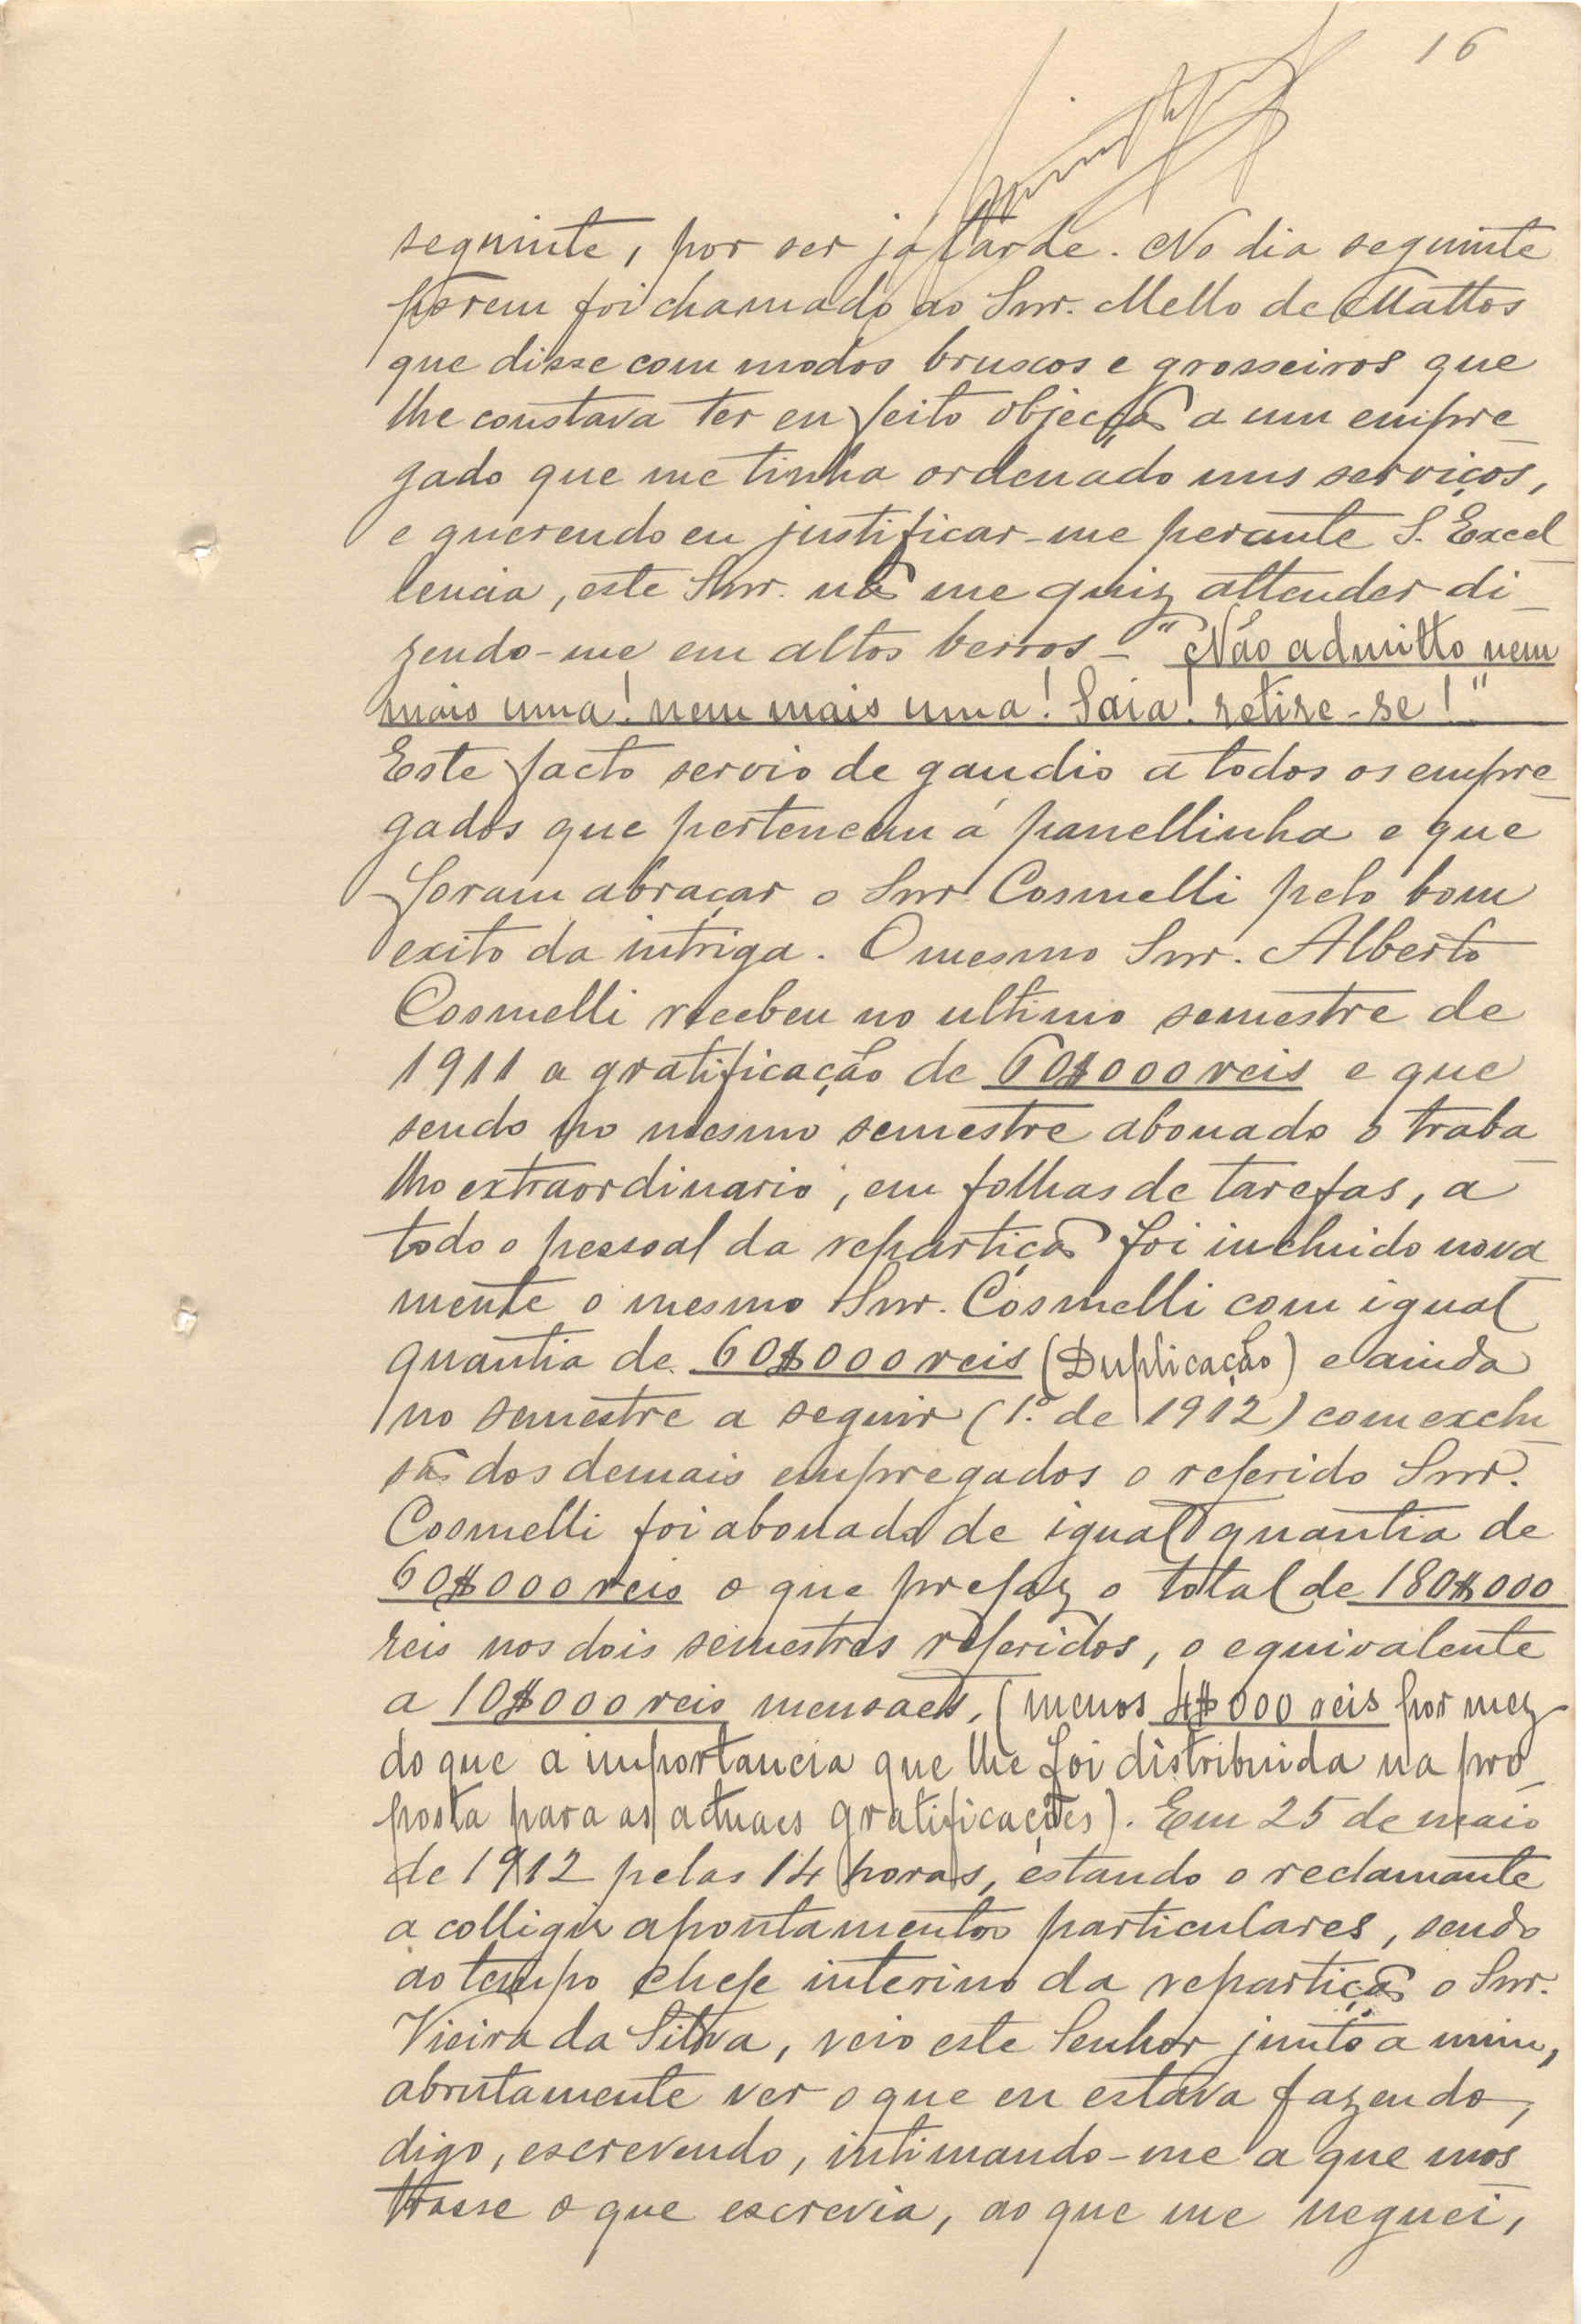 16
seguinte, por ser já tarde. No dia seguinte
porem foi chamado ao Snr. Mello de Mattos
que disse com modos bruscos e grosseiros que
lhe constava ter eu feito objecção a um empre_
gado que me tinha ordenado uns serviços,
e querendo eu justificar-me perante S. Excel_
lencia, este Snr. não me quiz attender di_
zendo-me em altos berros – "Não admitto nem
mais uma! nem mais uma! Saia! retire-se!"
Este facto servio de gaudio a todos os empre_
gados que pertencem á panellinha e que
foram abraçar o Snr. Cosmelli pelo bom
exito da intriga. O mesmo Snr. Alberto
Cosmelli recebeu no ultimo semestre de
1911 a gratificação de 60$000 reis e que
sendo no mesmo semestre abonado o traba_
lho extraordinario, em folhas de tarefas, a
todo o pessoal da repartição foi incluido nova_
mente o mesmo Snr. Cosmelli com igual
quantia de 60$000 reis (Duplicação) e ainda
no semestre a seguir (1.º de 1912) com exclu_
são dos demais empregados o referido Snr.
Cosmelli foi abonado de igual quantia de
60$000 reis o que prefaz o total de 180$000
reis nos dois semestres referidos, o equivalente
a 10$000 reis mensaes, (menos 4$000 reis por mez
do que a importancia que lhe foi distribuida na pro_
posta para as actuaes gratificações). Em 25 de maio
de 1912 pelas 14 horas, estando o reclamante
a colligir apontamentos particulares, sendo
ao tempo chefe interino da repartição o Snr.
Vieira da Silva, veio este Senhor junto a mim,
abrutamente ver o que eu estava fazendo,
digo, escrevendo, intimando-me a que mos_
trasse o que escrevia, ao que me neguei,